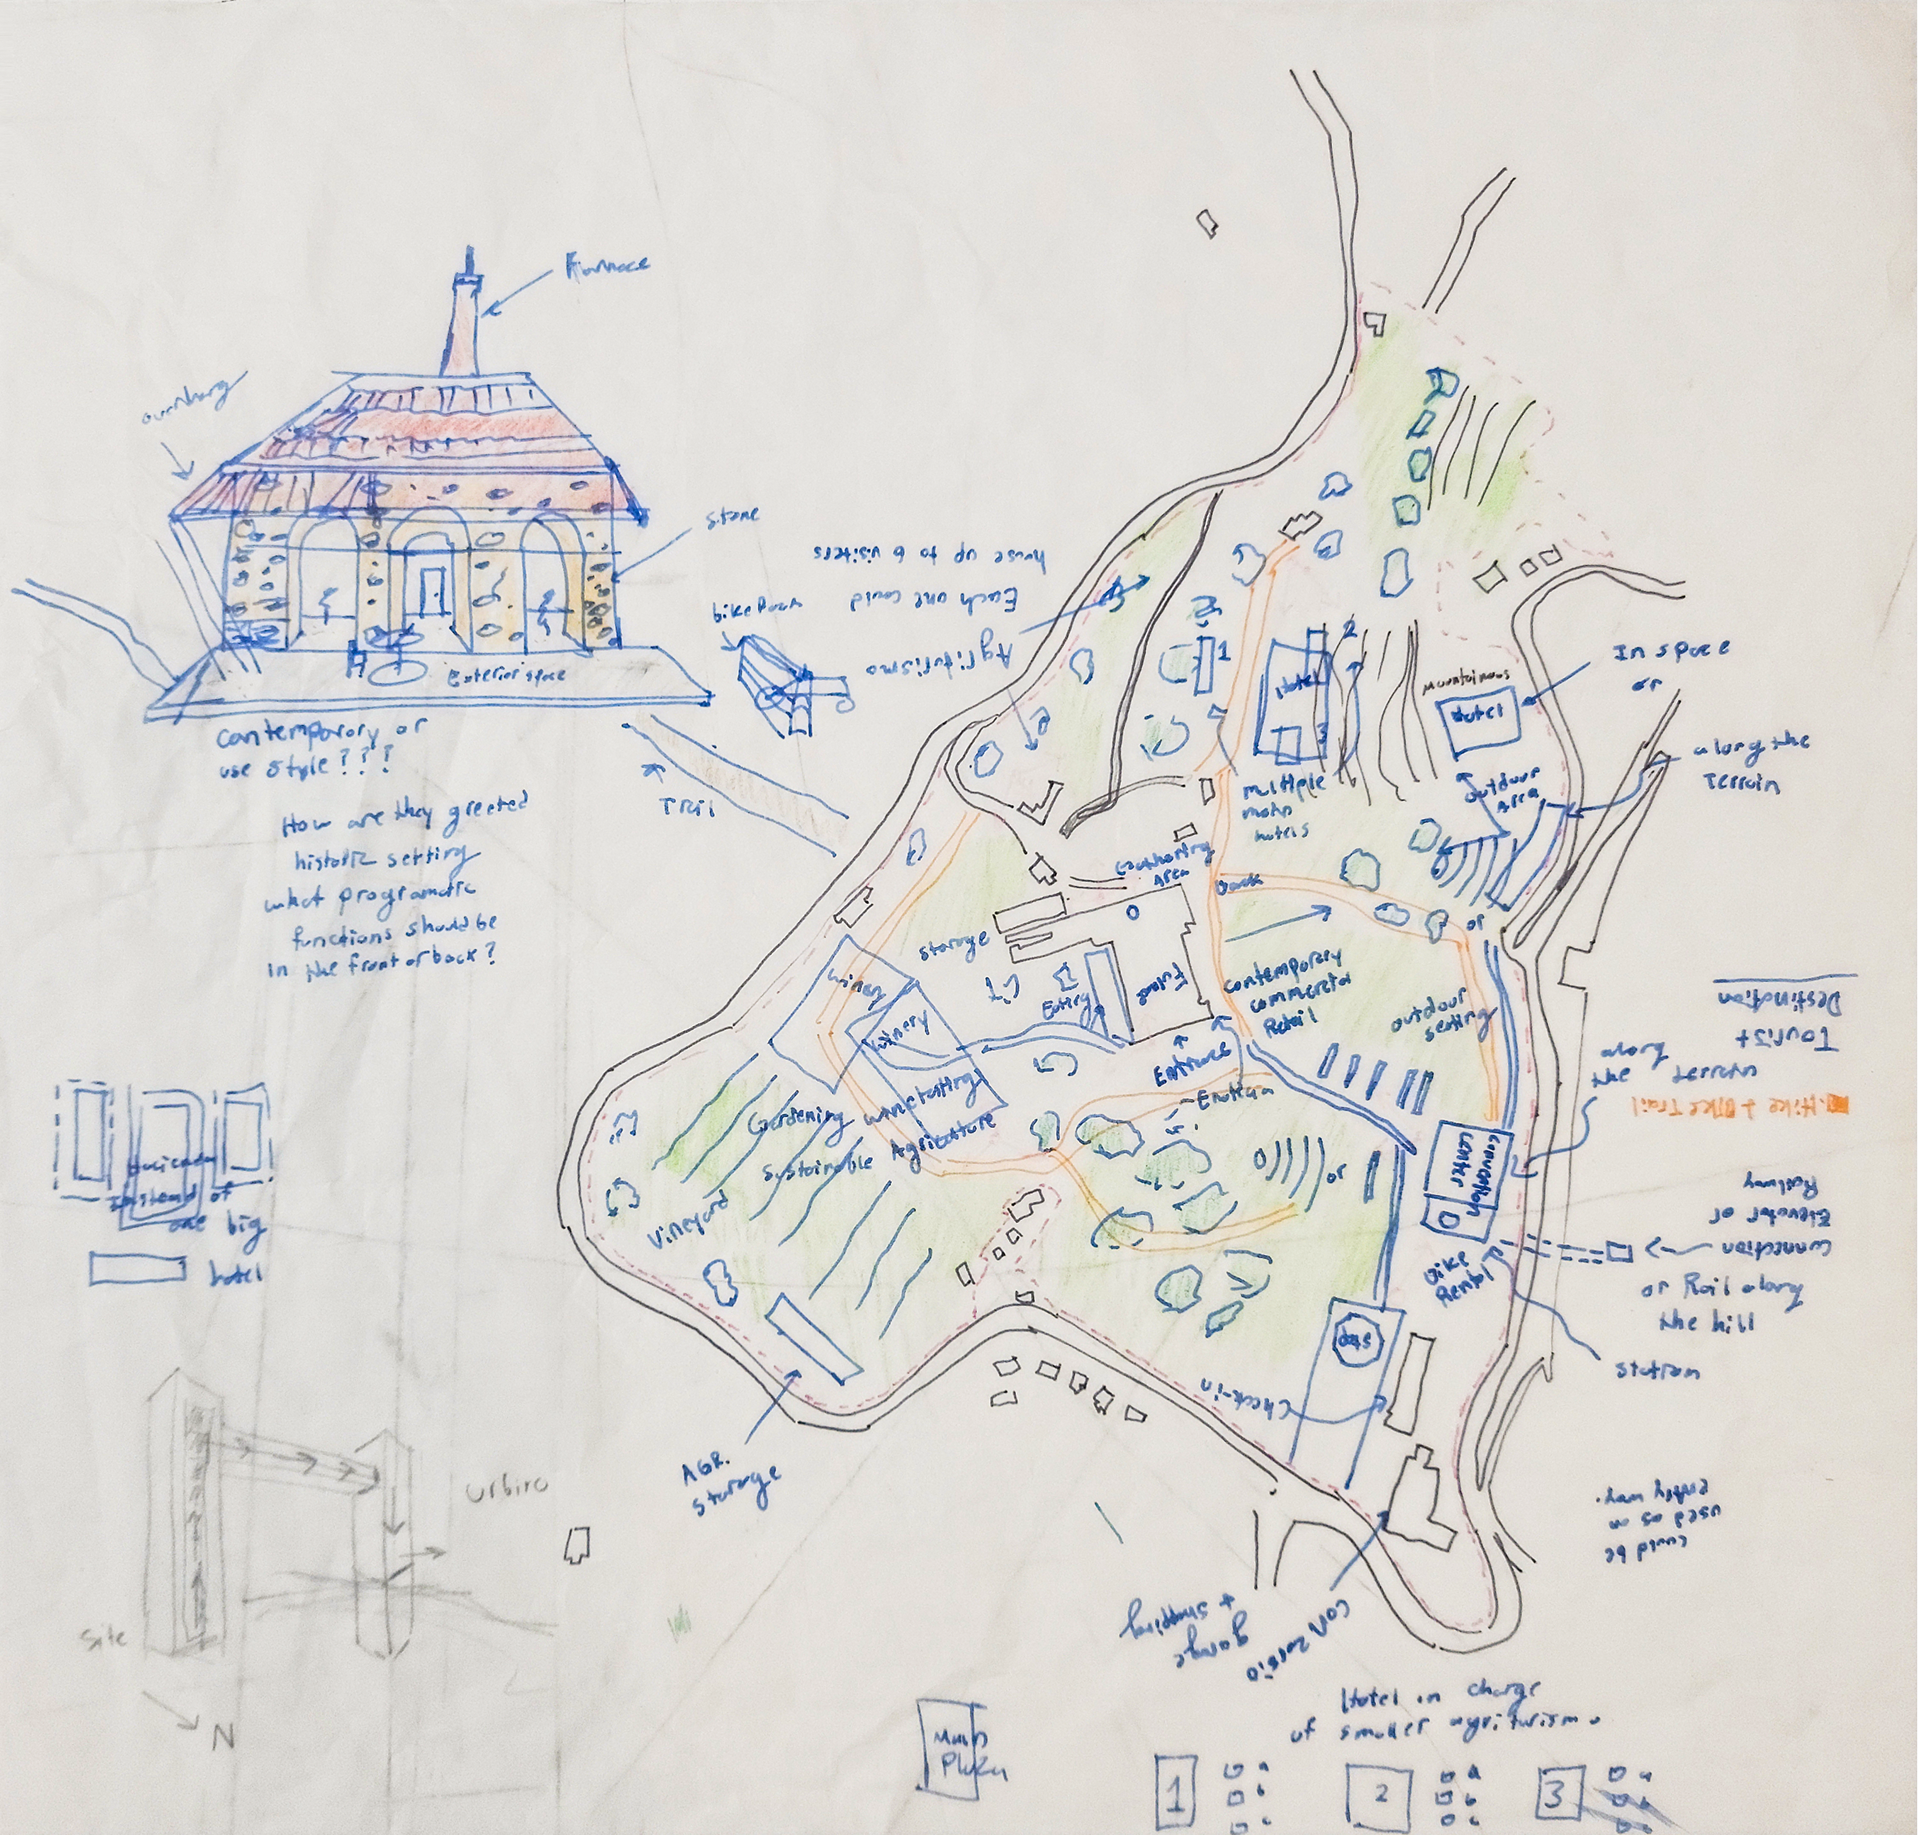 Furnace
overhang
stone
Exterior space
Contemporary or
use style???
How are they greeted
historic setting
what programatic
functions should be
in the front or back?
Trail
bike Rack
Agriturismo
Each one could
house up to 6 visiters
1
Hotel
2
3
multiple
main
hotels
Mountainous
Hotel
In space
or
along the
Terrain
outdoor
Area
or
Gathering
Area
Back
storage
Eatery
Entrance
contemporary
commercial
Retail
outdoor
seating
winery
winery
winetasting
Gardening
sustainable Agriculture
Vineyard
or
Convention
center
Bike
Rental
along
the terrain
Tourist
Destination
Hike + Bike Trail
connection
Elevator or
Railway
or Rail along
the hill
station
Check-in
AGR.
storage
Instead of
one big
hotel
Urbino
site
N
Consorzio
garage
+ shopping
could be
used as an
entry way.
Main
Plaza
Hotel in charge
of smaller agriturismo
1 a
b
c
2 a
b
c
3 a
b
c